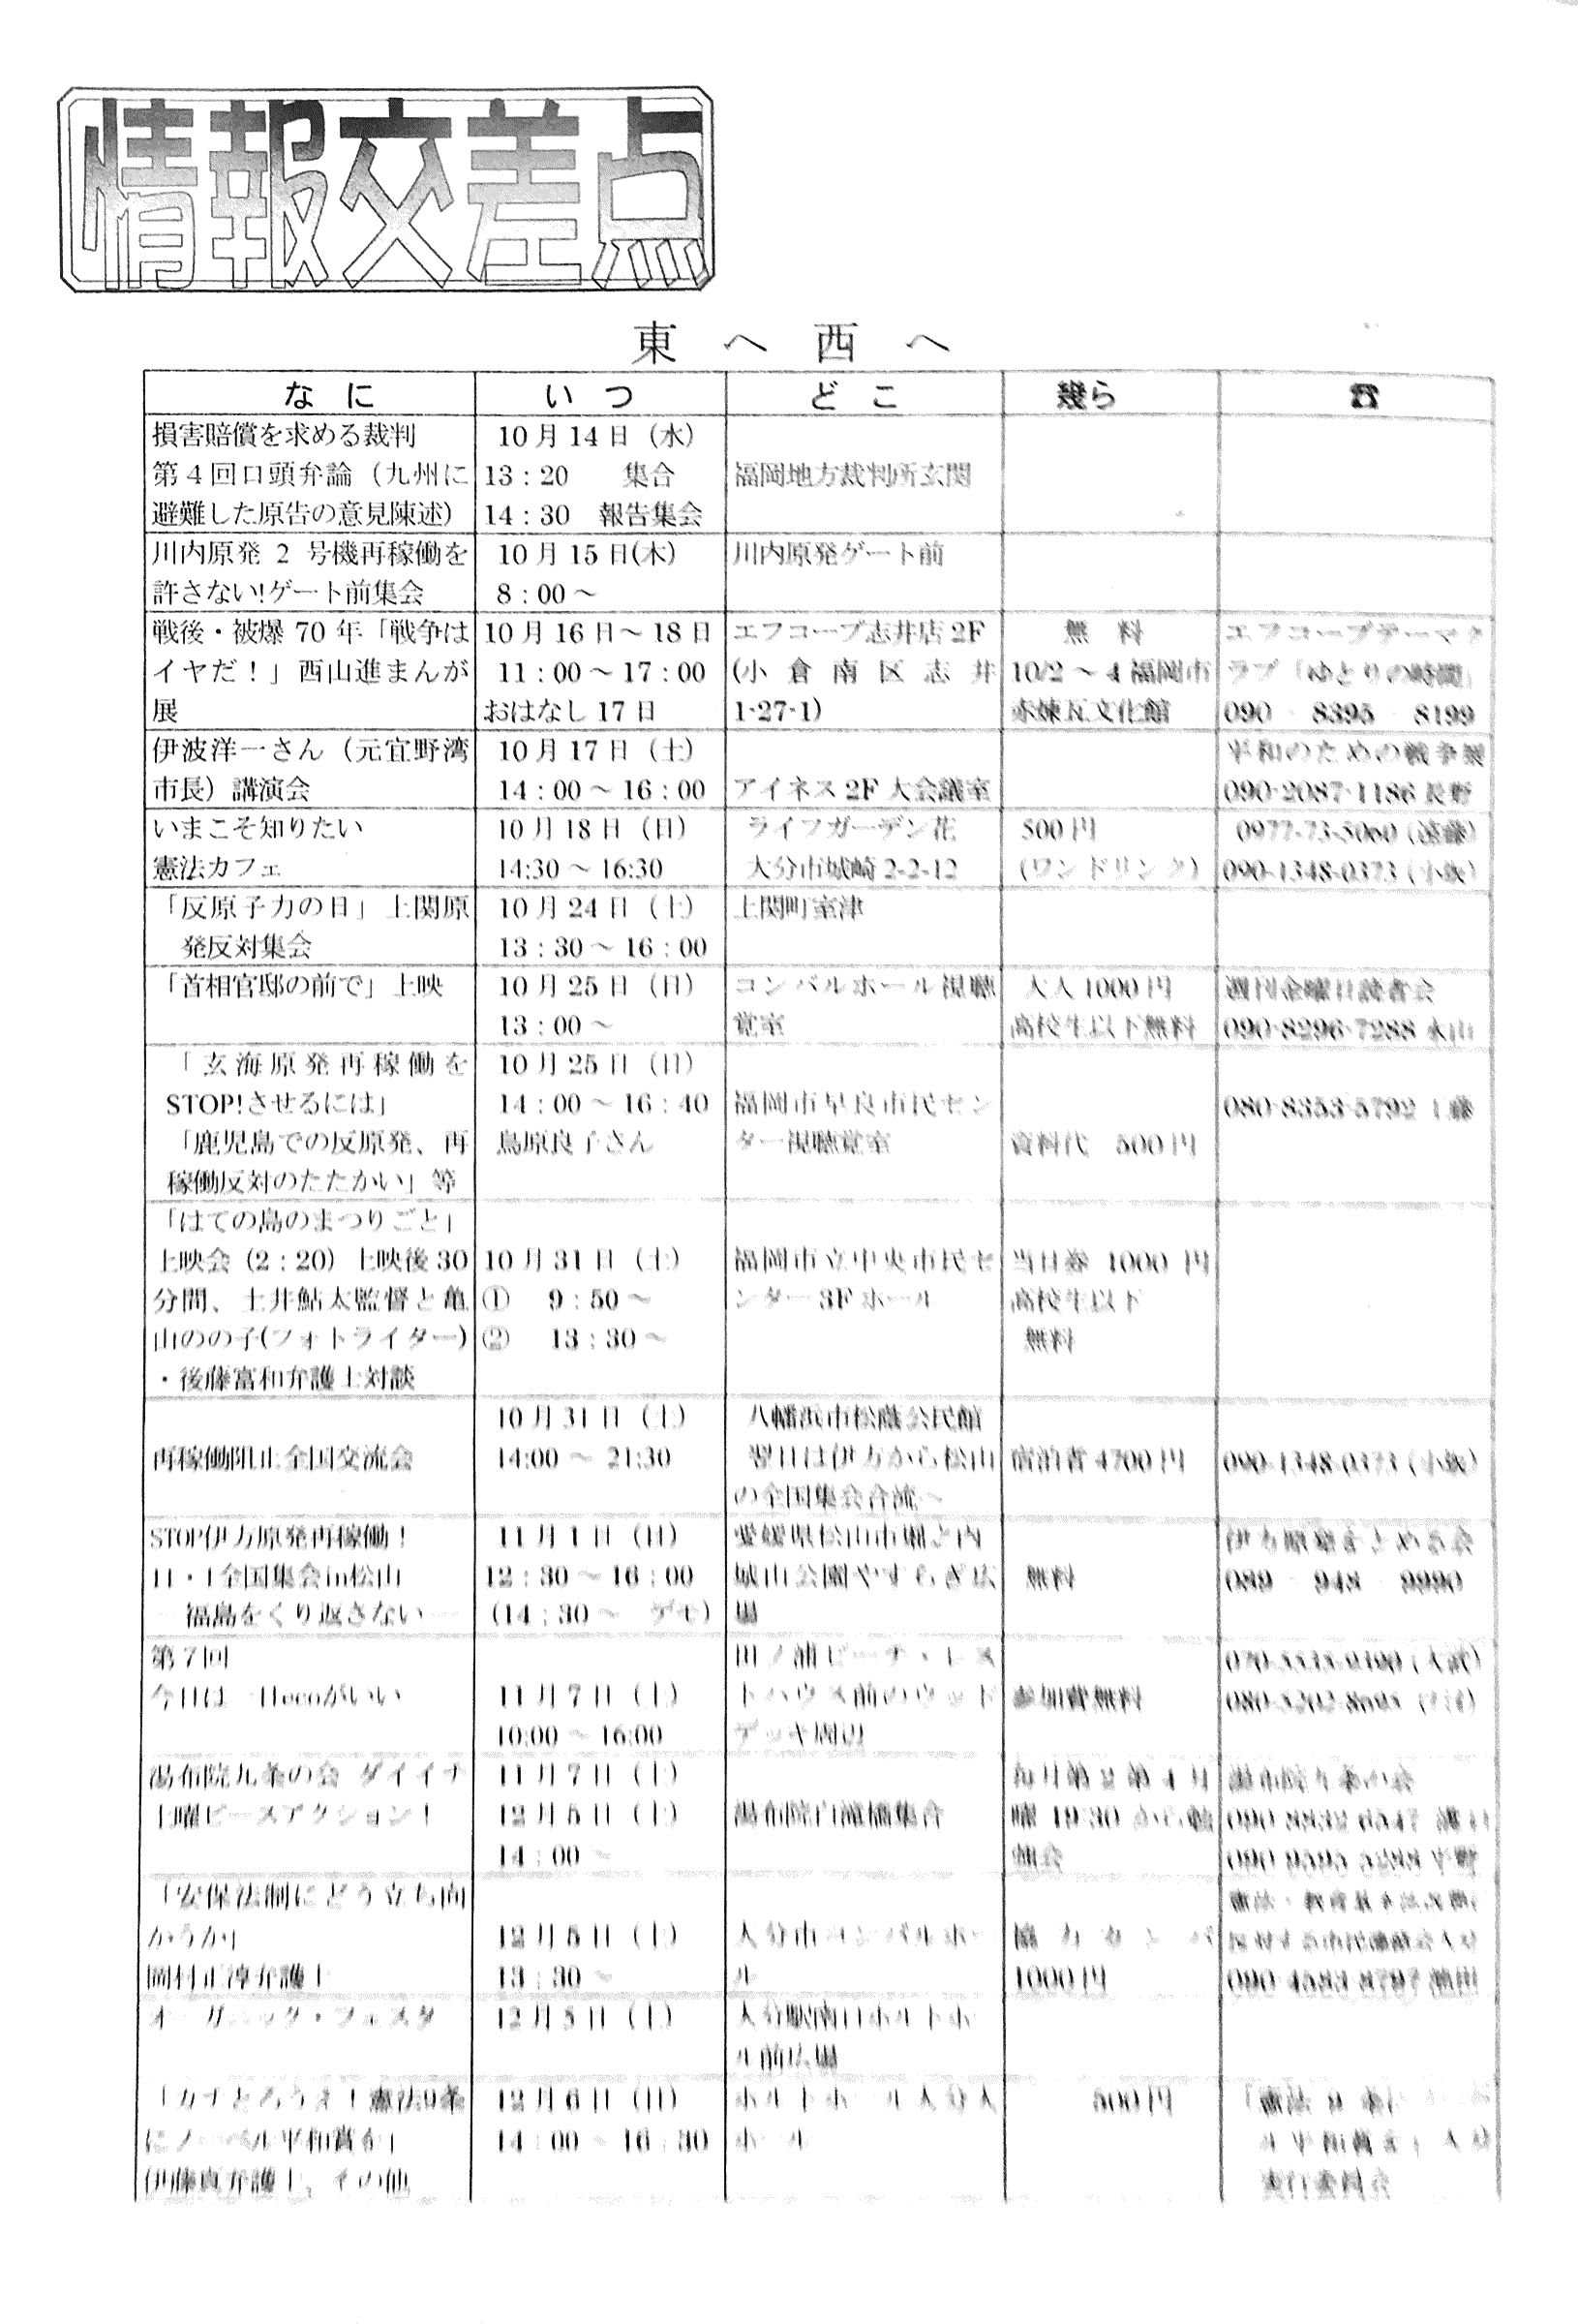 情報交差点
東へ西へ
なに　いつ　どこ　幾ら　☎
損害賠償を求める裁判　10月14日（水）
第4回口頭弁論（九州に　13：20　集合　福岡地方裁判所玄関
避難した原告の意見陳述）　14：30　報告集会
川内原発 2 号機再稼働を　10月15日(木)　川内原発ゲート前
許さない!ゲート前集会　8：00～
戦後・被爆 70 年「戦争は　10月16日～18日　エフコープ志井店2F　無　料　エフコープテーマク
イヤだ！」西山進まんが　11：00～17：00　(小倉南区志井　10/2～4福岡市　ラブ「ゆとりの時間」
展　おはなし17日　1-27-1)　赤煉瓦文化館　090-8395-8199
伊波洋一さん（元宜野湾　10月17日（土）　平和のための戦争展
市長）講演会　14：00～16：00　アイネス2F大会議室　090-2087-1186長野
いまこそ知りたい　10月18日（日）　ライフガーデン花　500円　0977-73-5060（遠藤）
憲法カフェ　14:30～16:30　大分市城崎2-2-12　（ワンドリンク）　090-1348-0373（小坂）
「反原子力の日」上関原　10月24日（土）　上関町室津
発反対集会　13：30～16：00
「首相官邸の前で」上映　10月25日（日）　コンパルホール視聴　大人1000円　週刊金曜日読者会
13：00～　覚室　高校生以下無料　090-8296-7288永山
「玄海原発再稼働を　10月25日（日）
STOP!させるには」　14：00～16：40　福岡市早良市民セン　080-8353-5792工藤
「鹿児島での反原発、再　鳥原良子さん　ター視聴覚室　資料代　500円
稼働反対のたたかい」等
「はての島のまつりごと」
上映会（2：20）上映後30　10月31日（土）　福岡市立中央市民セ　当日券 1000 円
分間、土井鮎太監督と亀　①　9：50～　ンター3Fホール　高校生以下
山のの子(フォトライター)　②　13：30～　無料
・後藤富和弁護士対談
10月31日（土）　八幡浜市松蔭公民館
再稼働阻止全国交流会　14:00～ 21:30　翌日は伊方から松山　宿泊者4700円　090-1348-0373（小坂）
の全国集会合流へ
STOP伊方原発再稼働！　11月1日（日）　愛媛県松山市堀之内
11・1全国集会in松山　12：30～16：00　城山公園やすらぎ広　無料　089-948-9990
福島をくり返さない　（14：30～ デモ）　場
第7回　田ノ浦ビーチ・レス
今日は一日ecoがいい　11月7日（土）　トハウス前のウッド　参加費無料
10:00～16:00　デッキ周辺
湯布院九条の会　11月7日（土）　湯布院九条の会
土曜ピースアクション！　12月5日（土）　湯布院白滝橋集合
14：00～
「安保法制にどう立ち向
かうか」　12月5日（土）　大分市コンパルホー
岡村正淳弁護士　13：30～　ル　1000円
オーガニック・フェスタ　12月5日（土）　大分駅南口ホルトホー
ル前広場
憲法9条　12月6日（日）　ホルトホール大分大　500円
にノーベル平和賞を」　14：00～16：30　ホール
伊藤真弁護士、その他　実行委員会